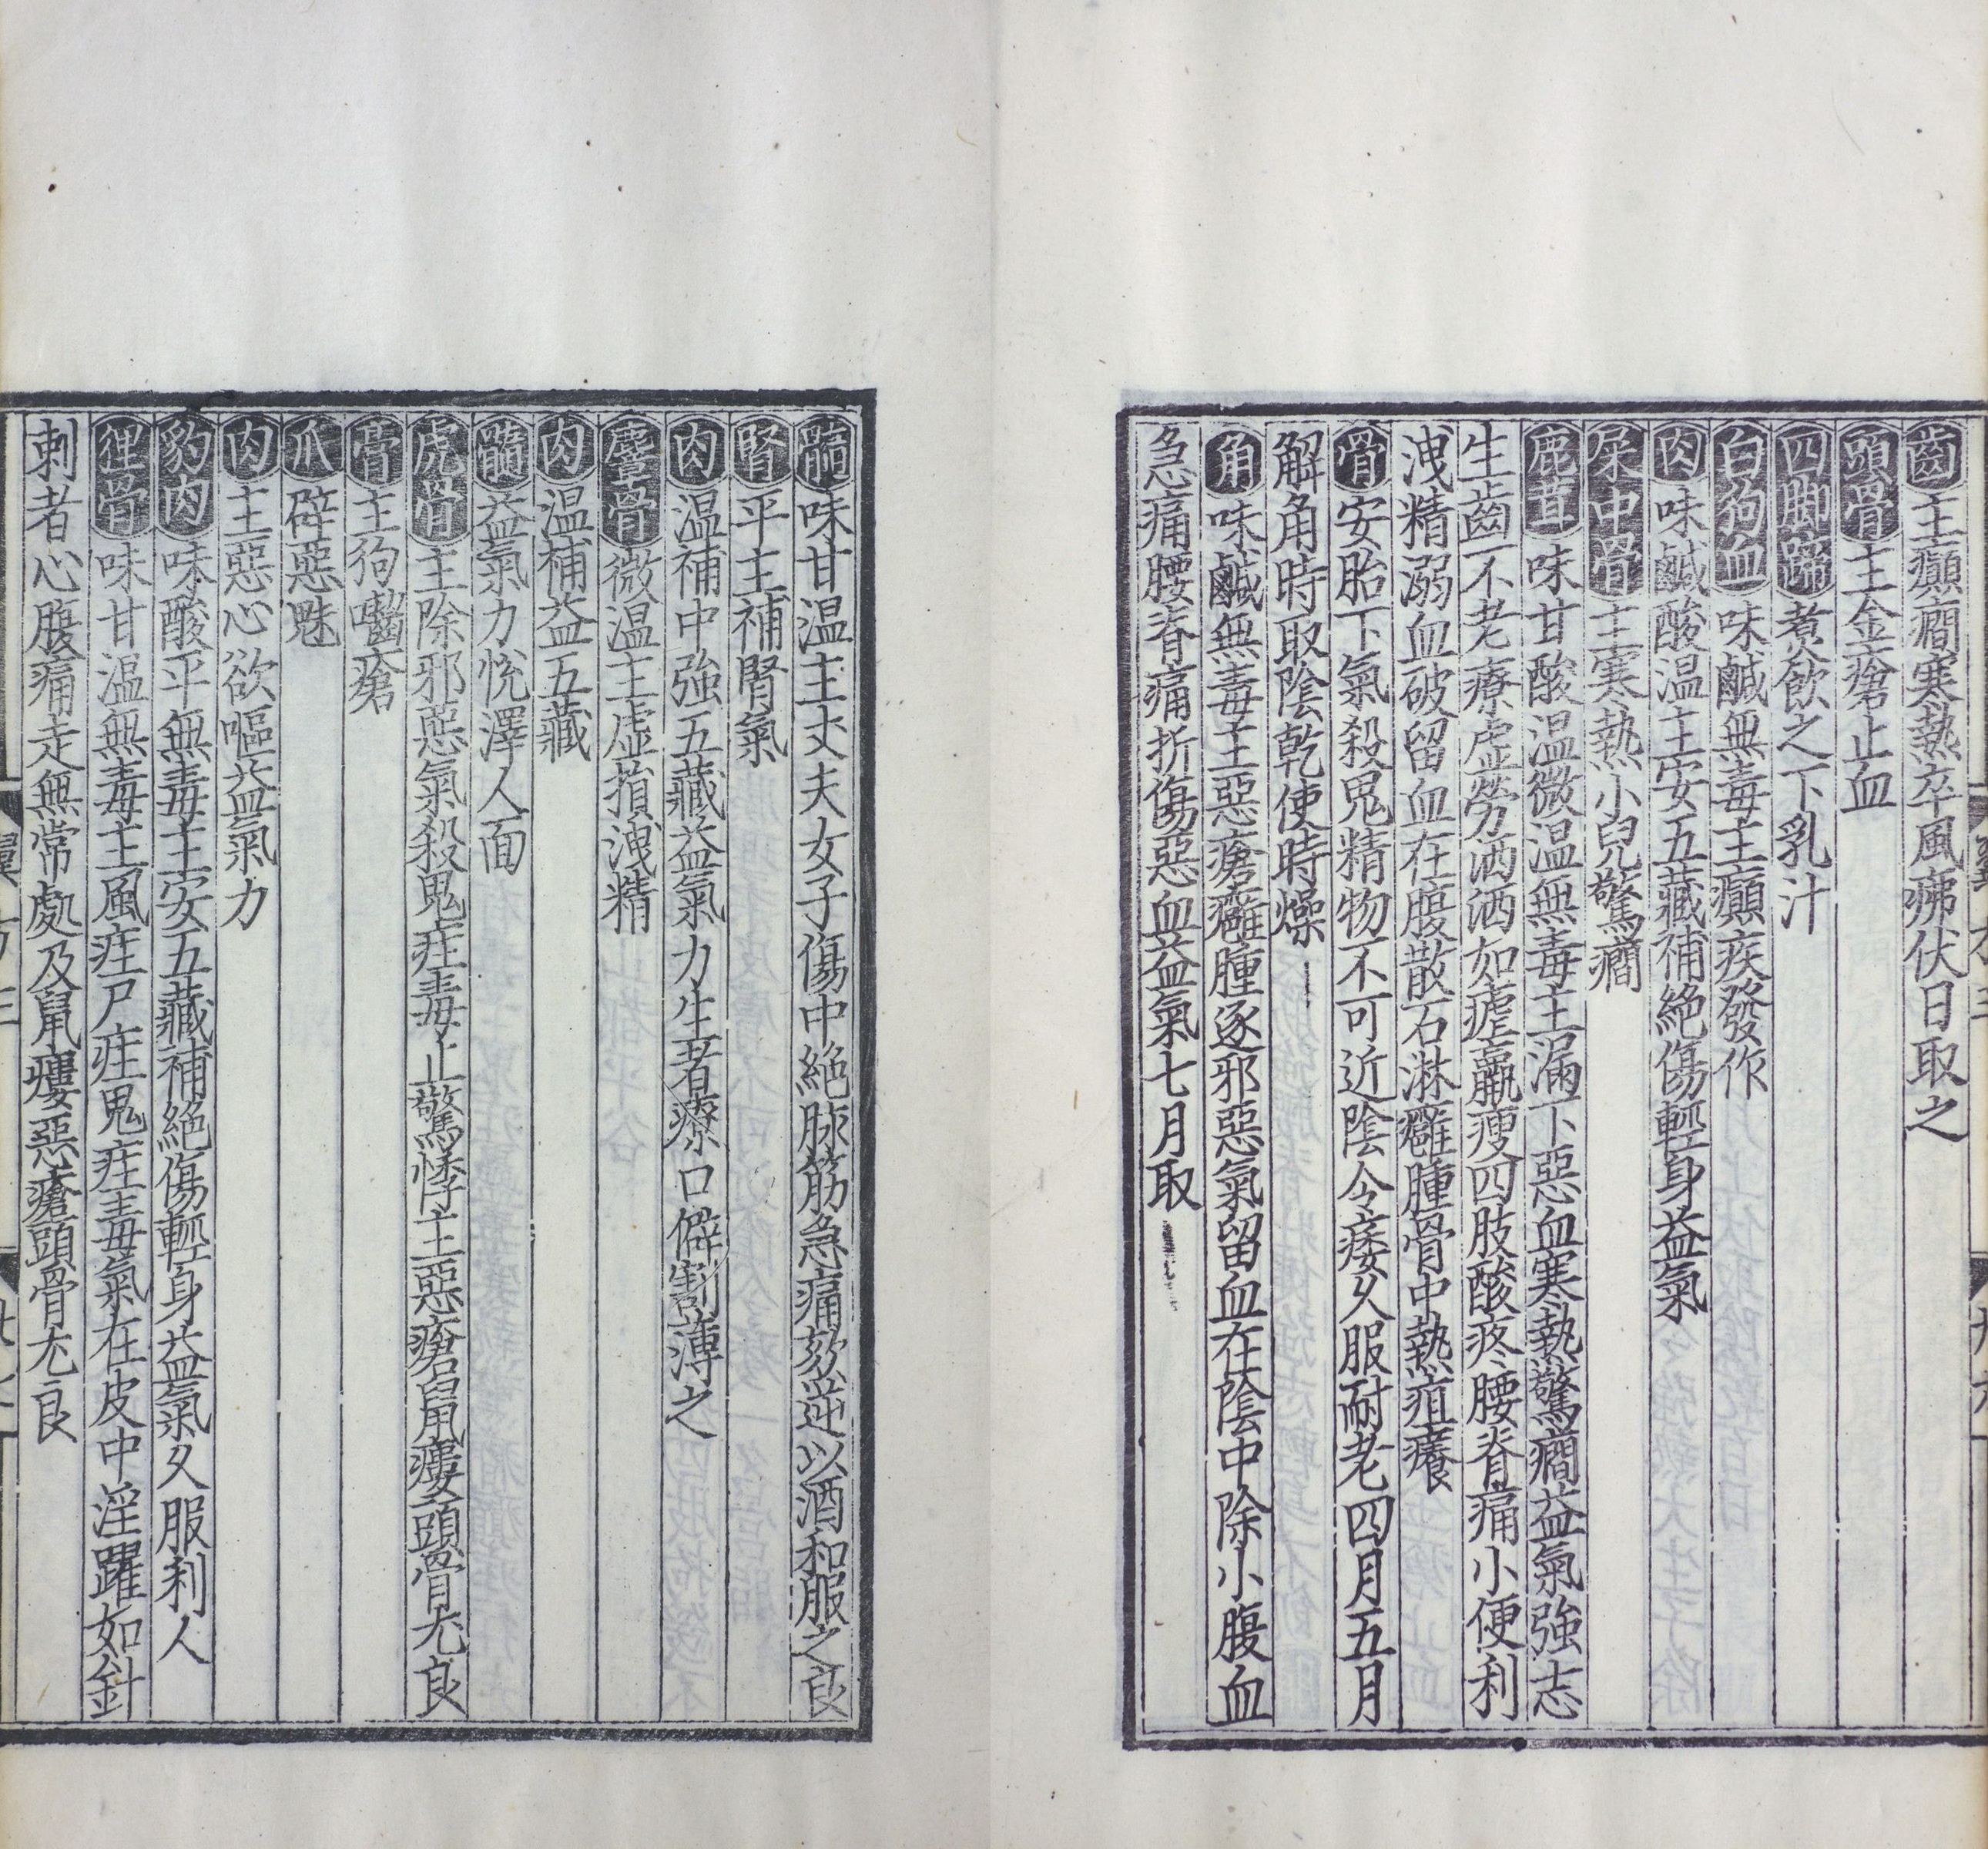 齒主癲癇寒熱卒風疿伏日取之
頭骨主金瘡止血
四脚蹄煮飲之下乳汁
白狗血味鹹無毒主癲疾發作
肉味鹹酸温主安五藏補絕傷輕身益氣
屎中骨主寒熱小兒驚癇
鹿茸味甘酸温微温無毒主漏下惡血寒熱驚癇益氣強志
生齒不老療虛勞洒洒如瘧羸瘦四肢酸疼腰脊痛小便利
洩精溺血破留血在腹散石淋癰腫骨中熱疽癢
骨安胎下氣殺鬼精物不可近陰令痿久服耐老四月五月
解角時取陰乾使時燥
角味鹹無毒主惡瘡癰腫逐邪惡氣留血在陰中除小腹血
急痛腰脊痛折傷惡血益氣七月取
髓味甘温主丈夫女子傷中絕脉筋急痛欬逆以酒和服之良
腎平主補腎氣
肉温補中強五藏益氣力生者療口僻割薄之
麞骨微温主虛損洩精
肉温補益五藏
髓益氣力悅澤人面
虎骨主除邪惡氣殺鬼疰毒止驚悸主惡瘡鼠瘻頭骨尤良
膏主狗嚙瘡
爪辟惡魅
肉主惡心欲嘔益氣力
豹肉味酸平無毒主安五藏補絕傷輕身益氣久服利人
狸骨味甘温無毒主風疰尸疰鬼疰毒氣在皮中淫躍如針
刺者心腹痛走無常處及鼠瘻惡瘡頭骨尤良